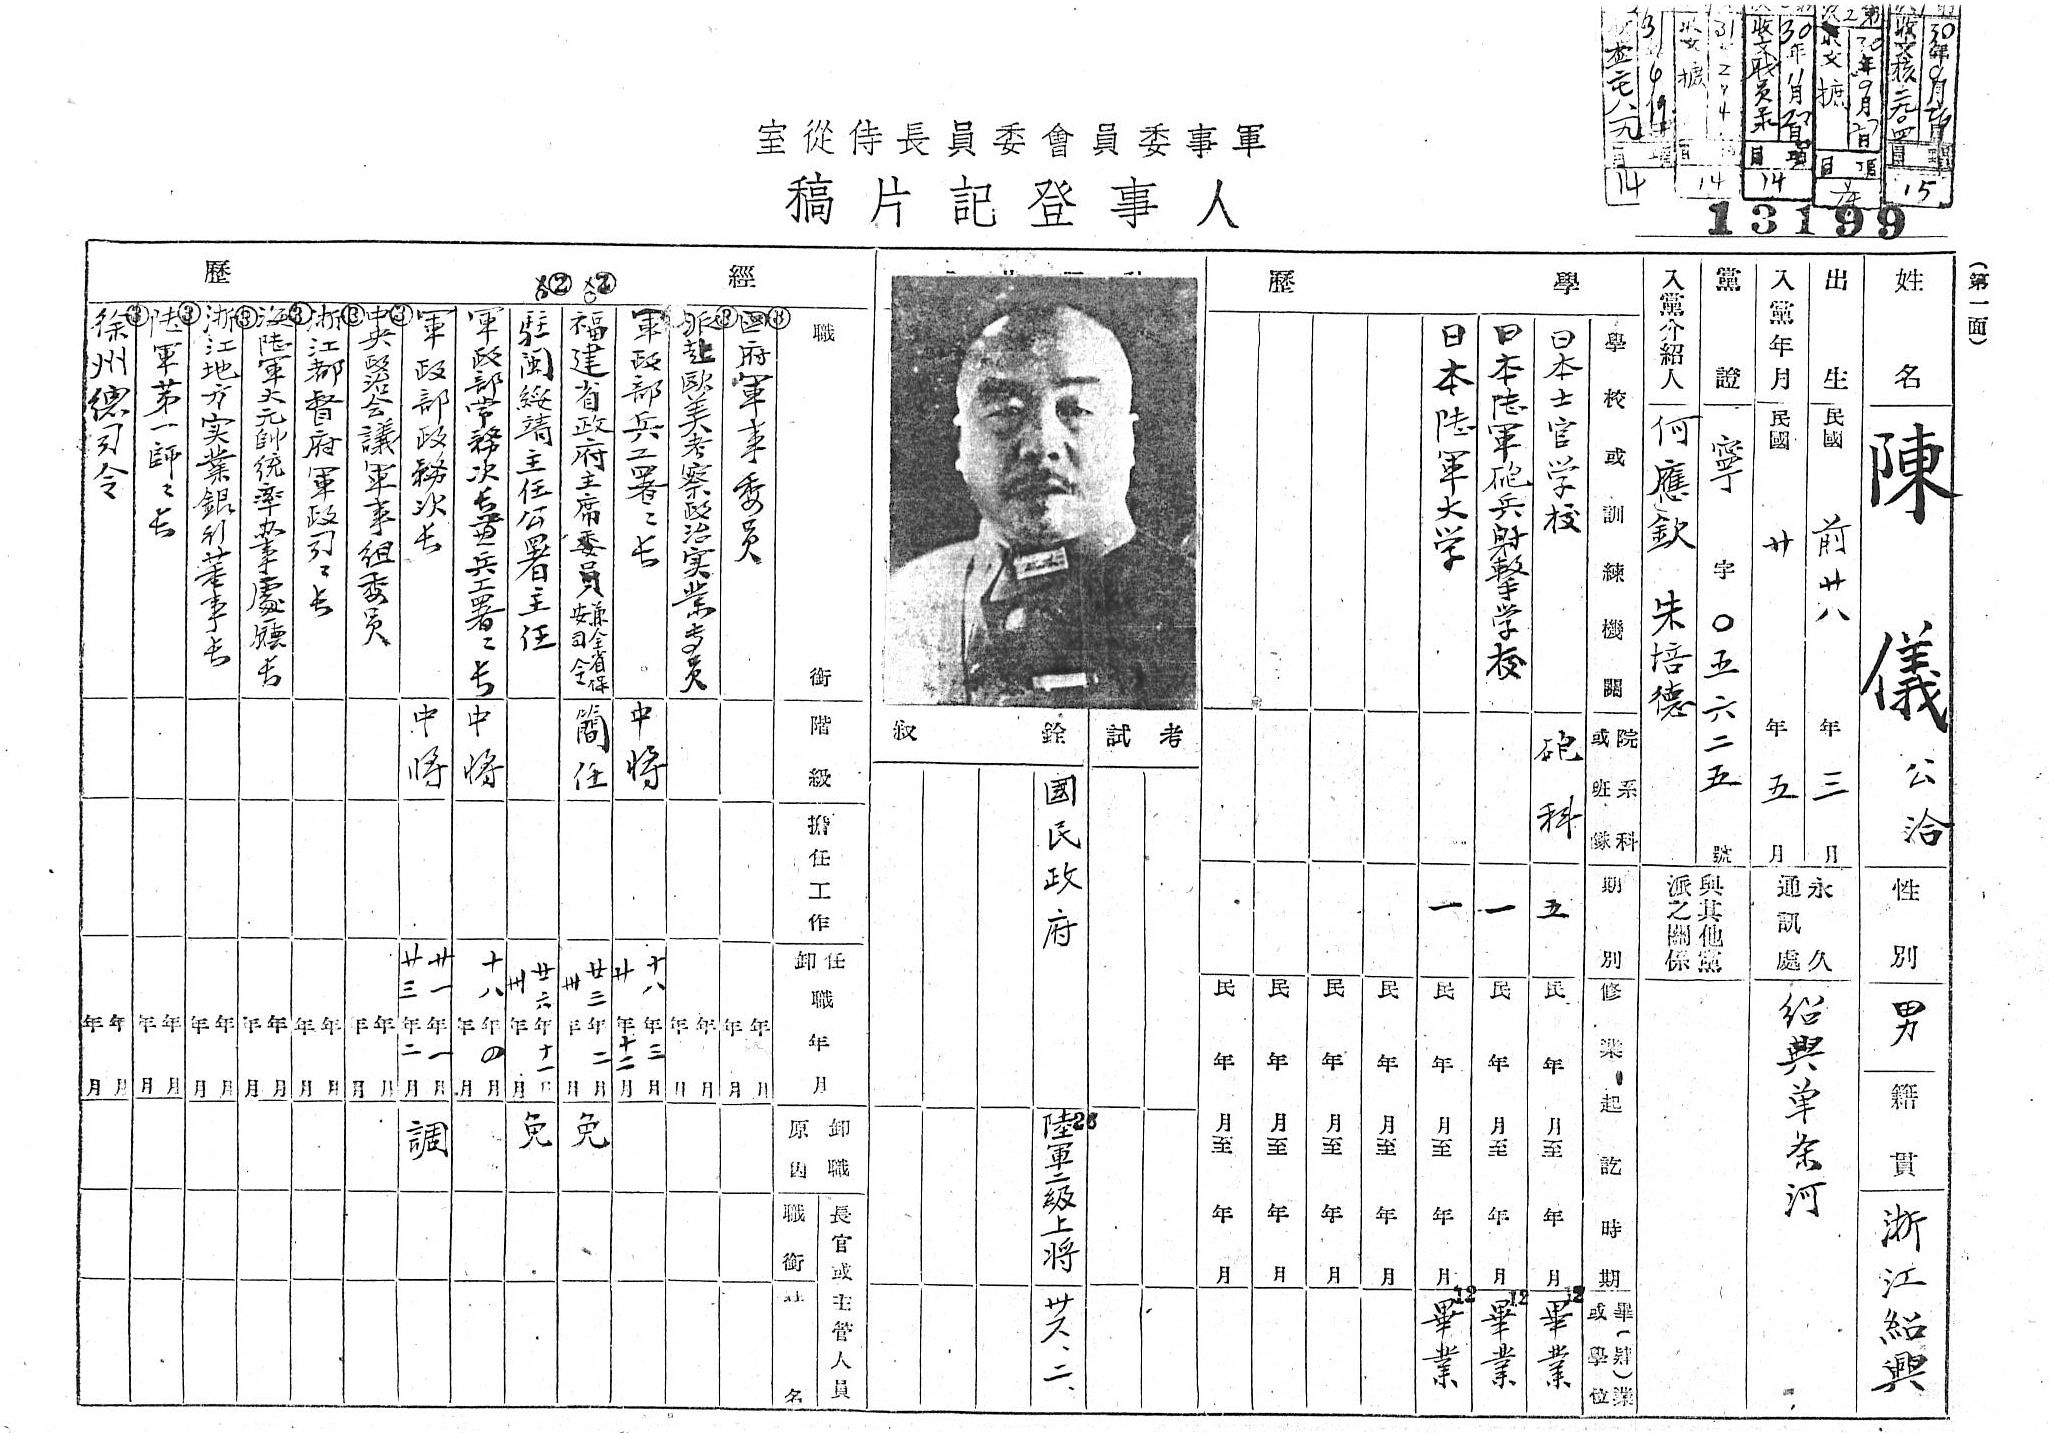 軍事委員會委員長侍從室
人事登記片稿
13199
(第一面)
姓名
陳儀 公洽
性別
男
籍貫
浙江紹興
出生
民國 前廿八年三月
入黨年月
民國 廿年五月
永久通訊處
紹興单条河
黨證
寧字〇五六二五號
入黨介紹人
何應欽 朱培德
與其他黨派之關係
學歷
學校或訓練機關
院系科或班隊
期別
修業起訖時期
畢(肄)業或學位
日本士官学校 砲科 五 民 年 月至 年 月 12 畢業
日本陸軍砲兵射擊学校 一 民 年 月至 年 月 12 畢業
日本陸軍大学 一 民 年 月至 年 月 12 畢業
民 年 月至 年 月
民 年 月至 年 月
民 年 月至 年 月
民 年 月至 年 月
考試
銓叙
國民政府 陸軍二級上將 廿六、二、
28
經歷
職銜
階級
擔任工作
任卸職年月
卸職原因
長官或主管人員
職銜
姓名
國府軍事委員 年 月 年 月
派赴歐美考察政治実業专員 年 月 年 月
軍政部兵工署々长 中將 十八年三月 廿年十二月
福建省政府主席委員 兼全省保安司令 簡任 廿三年二月 卅年 月 免
駐閩綏靖主任公署主任 廿六年十一月 卅年 月 免
軍政部常務次长兼兵工署々长 中將 十八年四月 年 月
軍政部政務次长 中將 廿一年一月 廿三年二月 調
中央政治会議軍事組委員 年 月 年 月
浙江都督府軍政司々长 年 月 年 月
海陸軍大元帥統率办事處廳长 年 月 年 月
浙江地方実業銀行董事长 年 月 年 月
陸軍第一師々长 年 月 年 月
徐州總司令 年 月 年 月